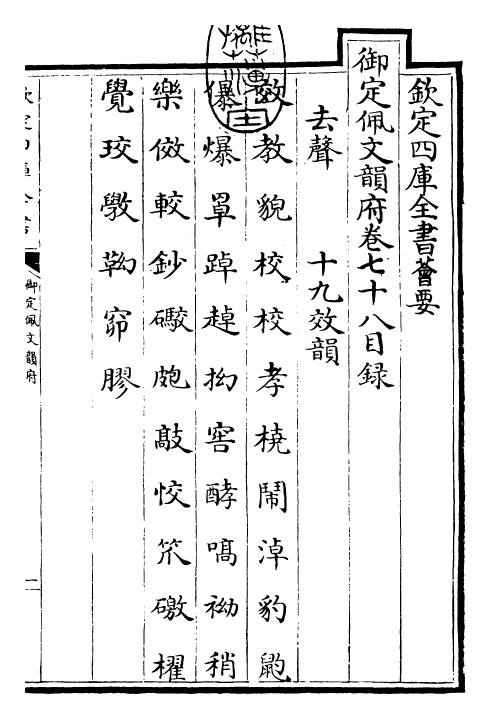 欽定四庫全書薈要
御定佩文韻府卷七十八目録
去聲　十九效韻
效教貌校校孝橈鬧淖豹鼩
爆爆罩踔趠抝窖酵嗃袎稍
樂傚較鈔礮皰敲恔笊磝櫂
覺珓斆靿窌膠
御定佩文韻府